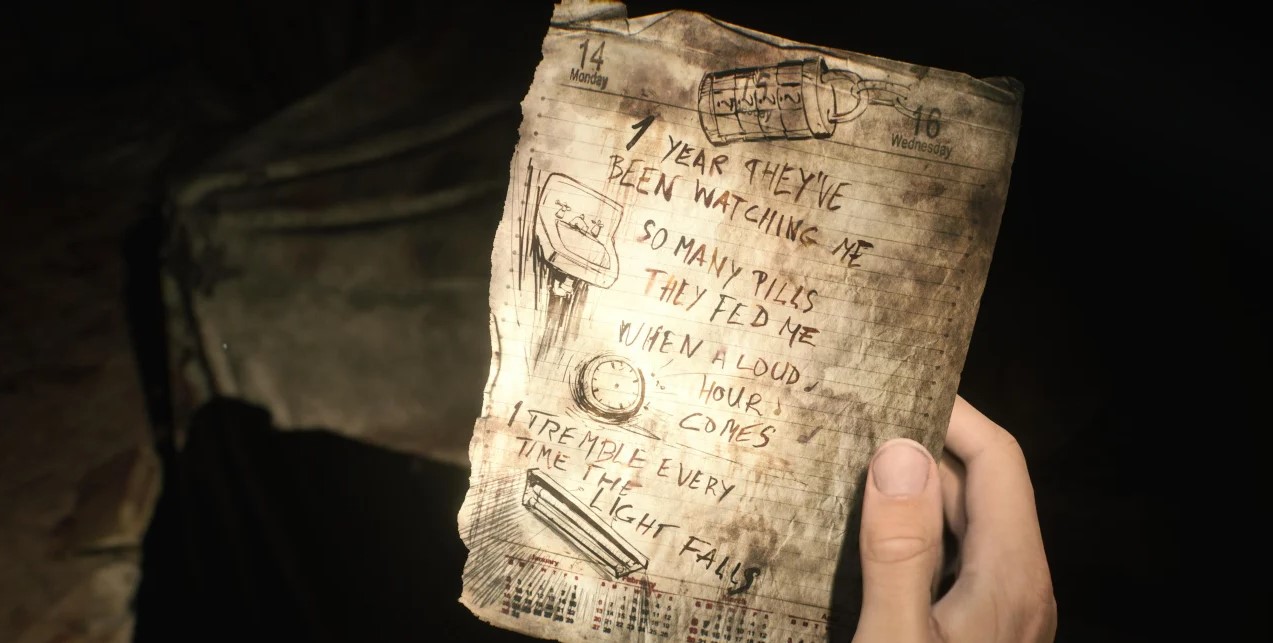 14
Monday
16
Wednesday
1 YEAR THEY'VE
BEEN WATCHING ME
SO MANY PILLS
THEY FED ME
WHEN A LOUD
HOUR
COMES
I TREMBLE EVERY
TIME THE
LIGHT FALLS
January
February